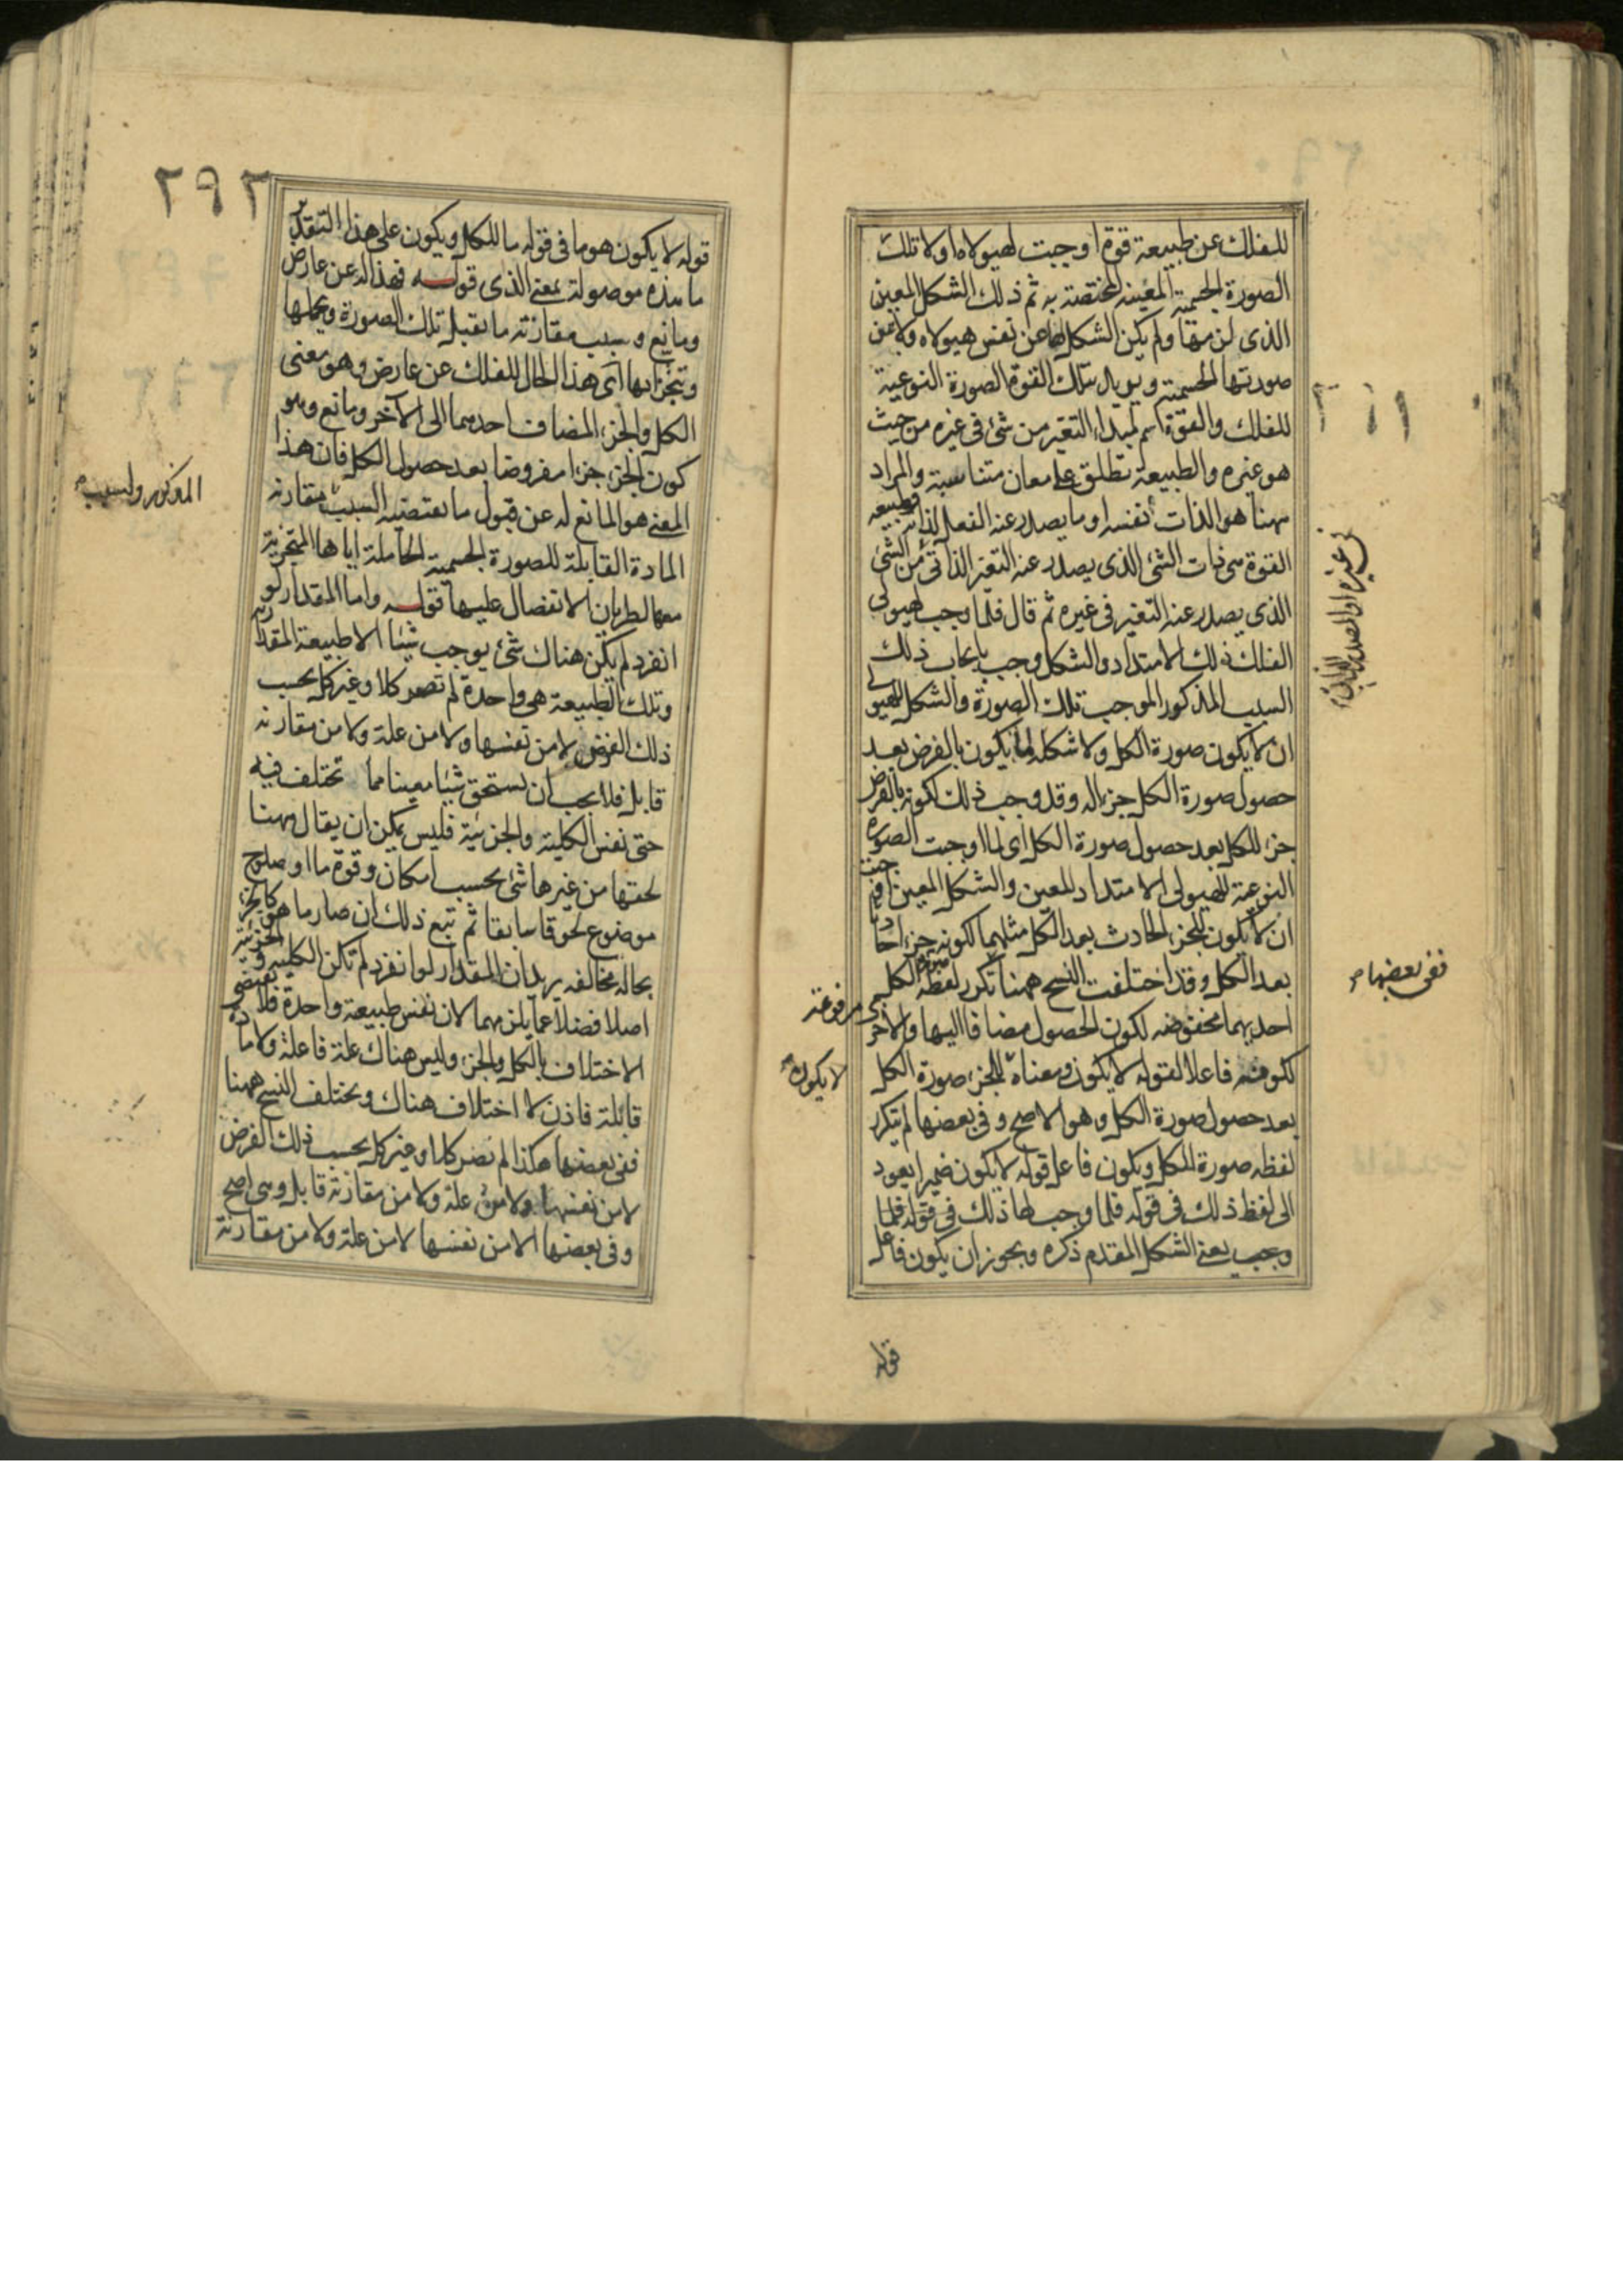 للفلك عن طبيعة قوة اوجبت لهيولاه اولا تلك
الصورة الجسمية المعينة المختصة به ثم ذلك الشكل المعين
الذى لزمها ولم يكن الشكل لها عن نفس هيولاه ولا عن
صورتها الجسمية ويريد بتلك القوة الصورة النوعية
للفلك والقوة اسم لمبداء التغير من شئ فى غيره من حيث
هو غيره والطبيعة تطلق على معان متناسبة والمراد
ههنا هو الذات نفسه او ما يصدر عنه الفعل لذاته فطبيعة
القوة هى ذات الشئ الذى يصدر عنه التغير الذاتى من الشئ
الذى يصدر عنه التغير فى غيره ثم قال فلما وجب لهيولى
الفلك ذلك الامتداد والشكل وجب بايجاب ذلك
السبب المذكور الموجب تلك الصورة والشكل للهيولى
ان لا يكون صورة الكل ولا شكله لما يكون بالفرض بعد
حصول صورة الكل جزءا له وقد وجب ذلك لكونه بالفرض
جزء للكل بعد حصول صورة الكل اى لما اوجبت الصورة
النوعية للهيولى الامتداد المعين والشكل المعين اوجبت
ان لا يكون للجزء الحادث بعد الكل مثلهما لكونه جزءا حادثا
بعد الكل وقد اختلفت النسخ ههنا تكرر لفظة صورة الكل
احديهما مخفوضة لكون الحصول مضافا اليها والاخرى مرفوعة
لكونه فاعلا لقوله لا يكون ومعناه للجزء صورة الكل
بعد حصول صورة الكل وهو الاصح وفى بعضها لم يتكرر
لفظه صورة الكل ويكون فاعل قوله لا يكون ضميرا يعود
الى لفظ ذلك فى قوله فلما وجب لها ذلك فى قوله فلما
وجب يعنى الشكل المقدم ذكره ويجوز ان يكون فاعل
فى غيره او المصدر
ففى بعضها
لا يكون
قوله
٢٩٢
قوله لا يكون هو ما فى قوله ما للكل ويكون على هذا التقدير
ما هذه موصولة بمعنى الذى قوله فهذا له عن عارض
ومانع وبسبب مقارنته ما يقبل تلك الصورة ويحملها
ويتجزا بها اى هذا الحال للفلك عن عارض وهو معنى
الكل والجزء المضاف احدهما الى الآخر ومانع وهو
كون الجزء جزءا مفروضا بعد حصول الكل فان هذا
المعنى هو المانع له عن قبول ما يقتضيه السبب مقارنة
المادة القابلة للصورة الجسمية الحاملة اياها المتجزية
معها لطريان الانفصال عليها قوله واما المقدار لو
انفرد لم يكن هناك شئ يوجب شيئا الا طبيعة المقدارية
وتلك الطبيعة هى واحدة لم تصر كلا وغير كل بحسب
ذلك الفرض لا من نفسها ولا من علة ولا من مقارنة
قابل فلا يجب ان يستحق شيئا معينا مما تختلف فيه
حتى نفس الكلية والجزئية فليس يمكن ان يقال ههنا
لحقها من غيرها شئ بحسب امكان وقوة ما او صلوح
موضوع لحوقا سابقا ثم تبع ذلك ان صار ما هو كالجزء
بحاله مخالفة يريد ان المقدار لو انفرد لم تكن الكلية والجزئية
اصلا فضلا عما يلزمهما لان نفس طبيعة واحدة فلا تقتضى
الاختلاف بالكل والجزء وليس هناك علة فاعلة ولا مادة
قابلة فاذن لا اختلاف هناك ويختلف النسخ ههنا
ففى بعضها هكذا لم تصر كلا وغير كل بحسب ذلك الفرض
لا من نفسها ولا من علة ولا من مقارنة قابل وهى اصح
وفى بعضها الا من نفسها لا من علة ولا من مقارنة
المذكور ولسبب